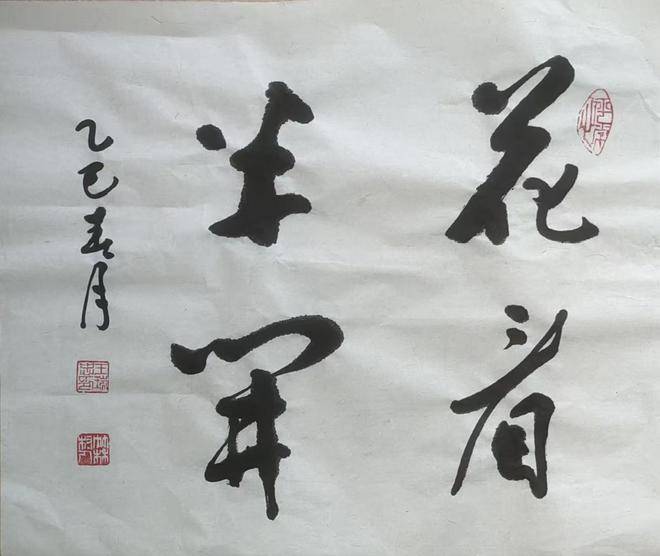 花看
半開
乙巳春月